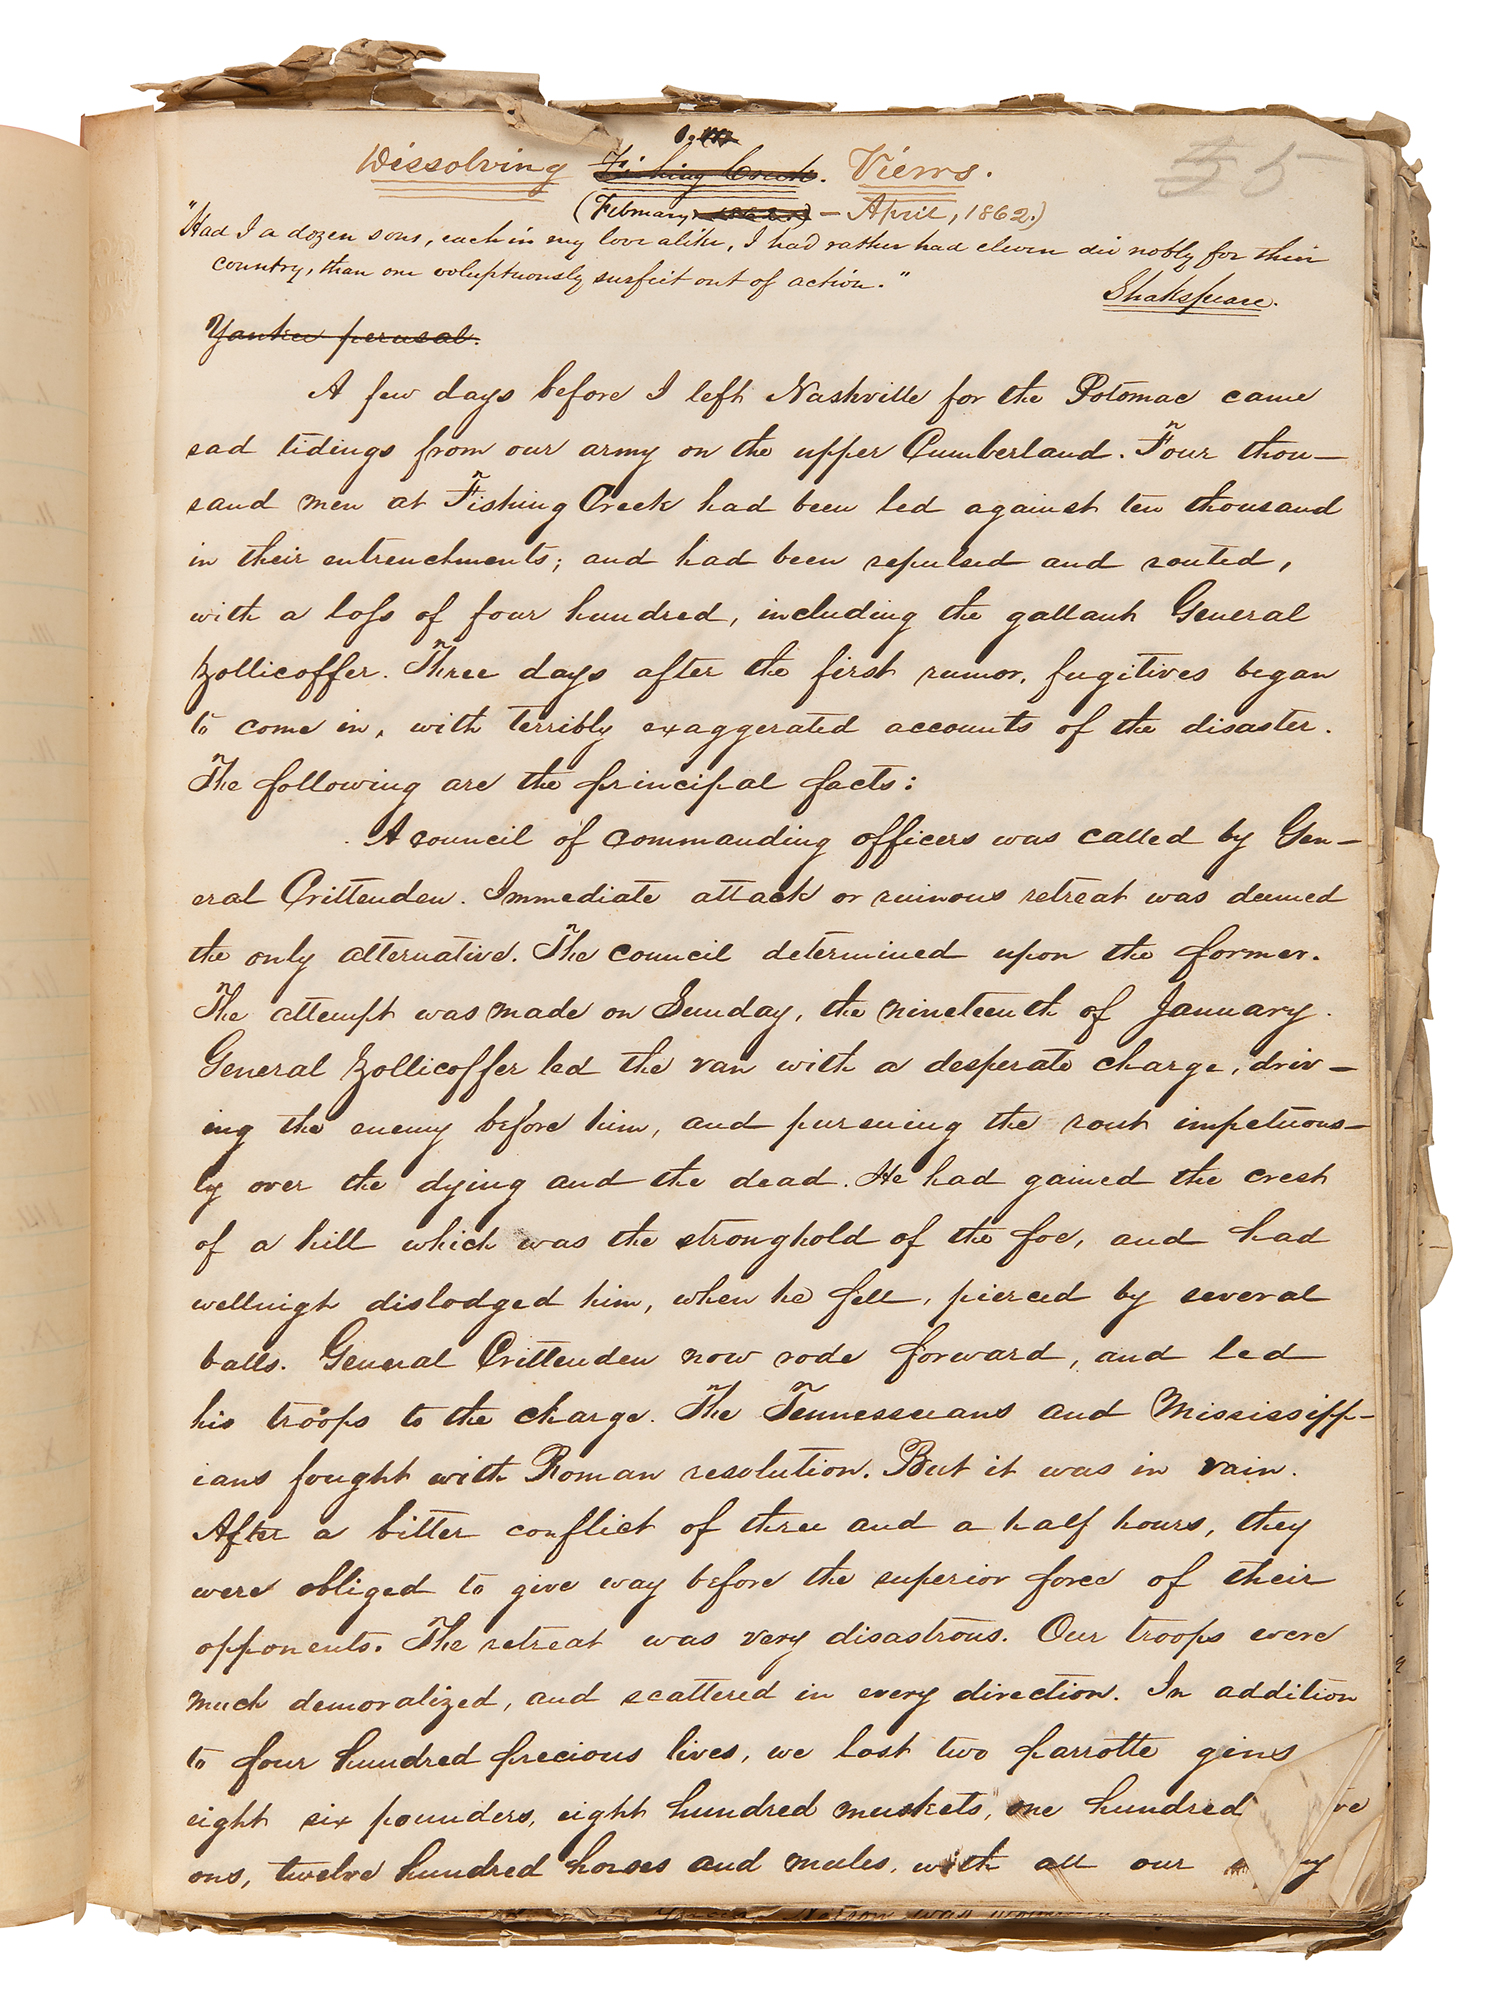 Dissolving Fishing Creek. Views.
55
(February, 1862.) — April, 1862.)
"Had I a dozen sons, each in my love alike, I had rather had eleven die nobly for their
country, than one voluptuously surfeit out of action."
Shakspeare.
Yankee perusal.
A few days before I left Nashville for the Potomac came
sad tidings from our army on the upper Cumberland. Four thou-
sand men at Fishing Creek had been led against ten thousand
in their entrenchments; and had been repulsed and routed,
with a loss of four hundred, including the gallant General
Zollicoffer. Three days after the first rumor, fugitives began
to come in, with terribly exaggerated accounts of the disaster.
The following are the principal facts:
A council of commanding officers was called by Gen-
eral Crittenden. Immediate attack or ruinous retreat was deemed
the only alternative. The council determined upon the former.
The attempt was made on Sunday, the nineteenth of January.
General Zollicoffer led the van with a desperate charge, driv-
ing the enemy before him, and pursuing the rout impetuous-
ly over the dying and the dead. He had gained the crest
of a hill which was the stronghold of the foe, and had
wellnigh dislodged him, when he fell, pierced by several
balls. General Crittenden now rode forward, and led
his troops to the charge. The Tennesseeans and Mississipp-
ians fought with Roman resolution. But it was in vain.
After a bitter conflict of three and a half hours, they
were obliged to give way before the superior force of their
opponents. The retreat was very disastrous. Our troops were
much demoralized, and scattered in every direction. In addition
to four hundred precious lives, we lost two parrotte guns
eight six pounders, eight hundred muskets, one hundred
ons, twelve hundred horses and mules, with all our